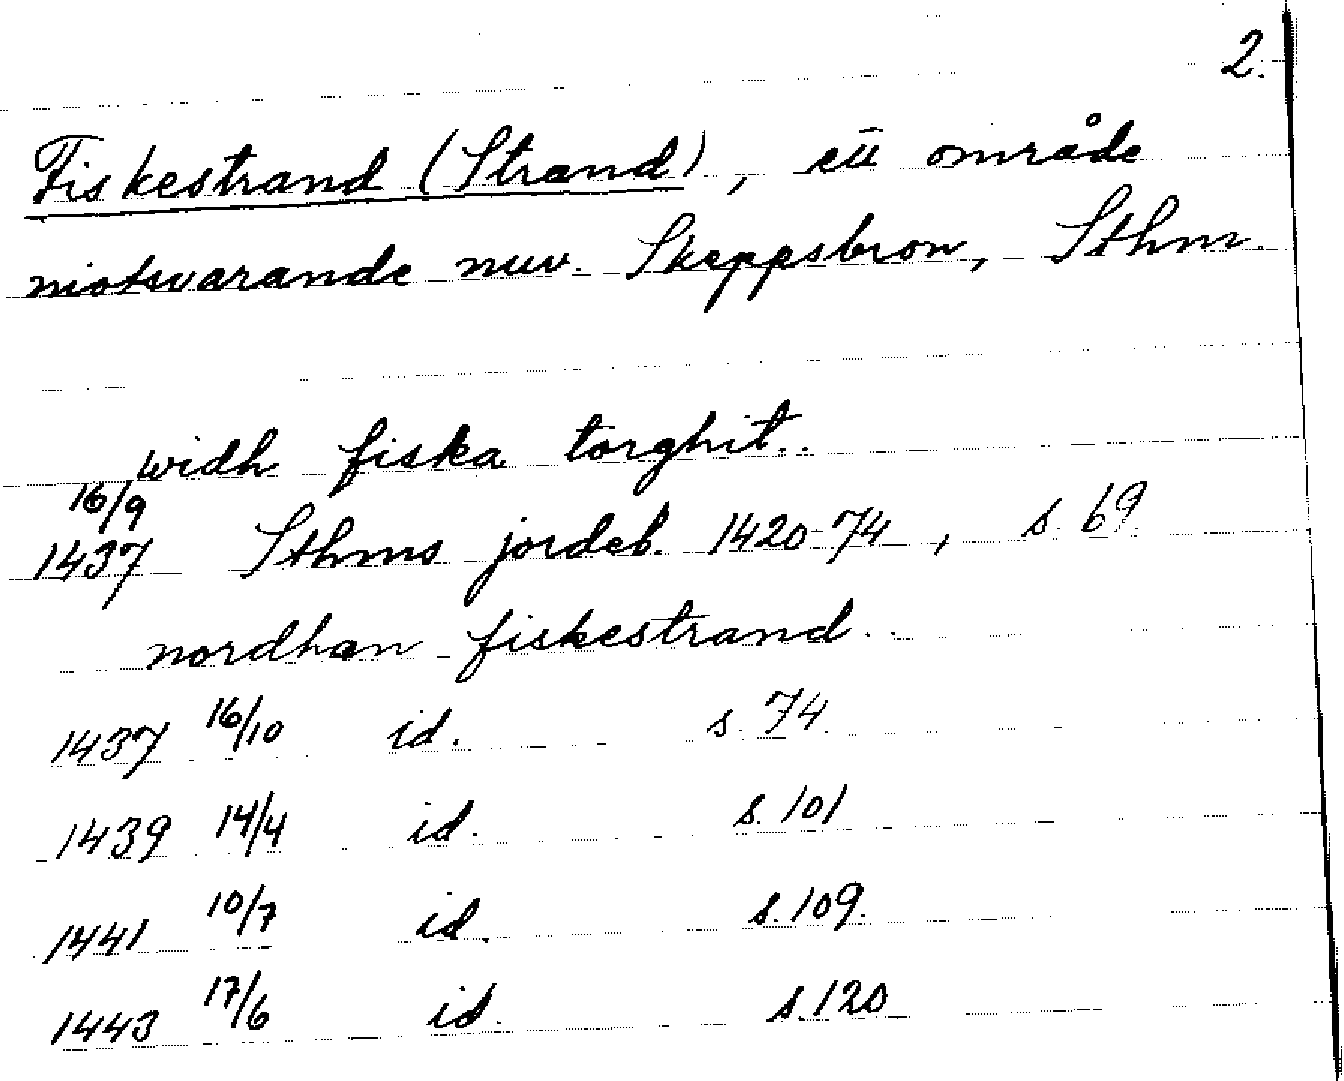 2.
Fiskestrand (Strand), ett område
motsvarande nuv. Skeppsbron, Sthm.
widh fiska torghit..
16/9
1437 Sthms jordeb. 1420-74, s. 69
nordhan fiskestrand
1437 16/10 id. s. 74
1439 14/4 id. s. 101
1441 10/7 id. s. 109.
1443 17/6 id. s. 120